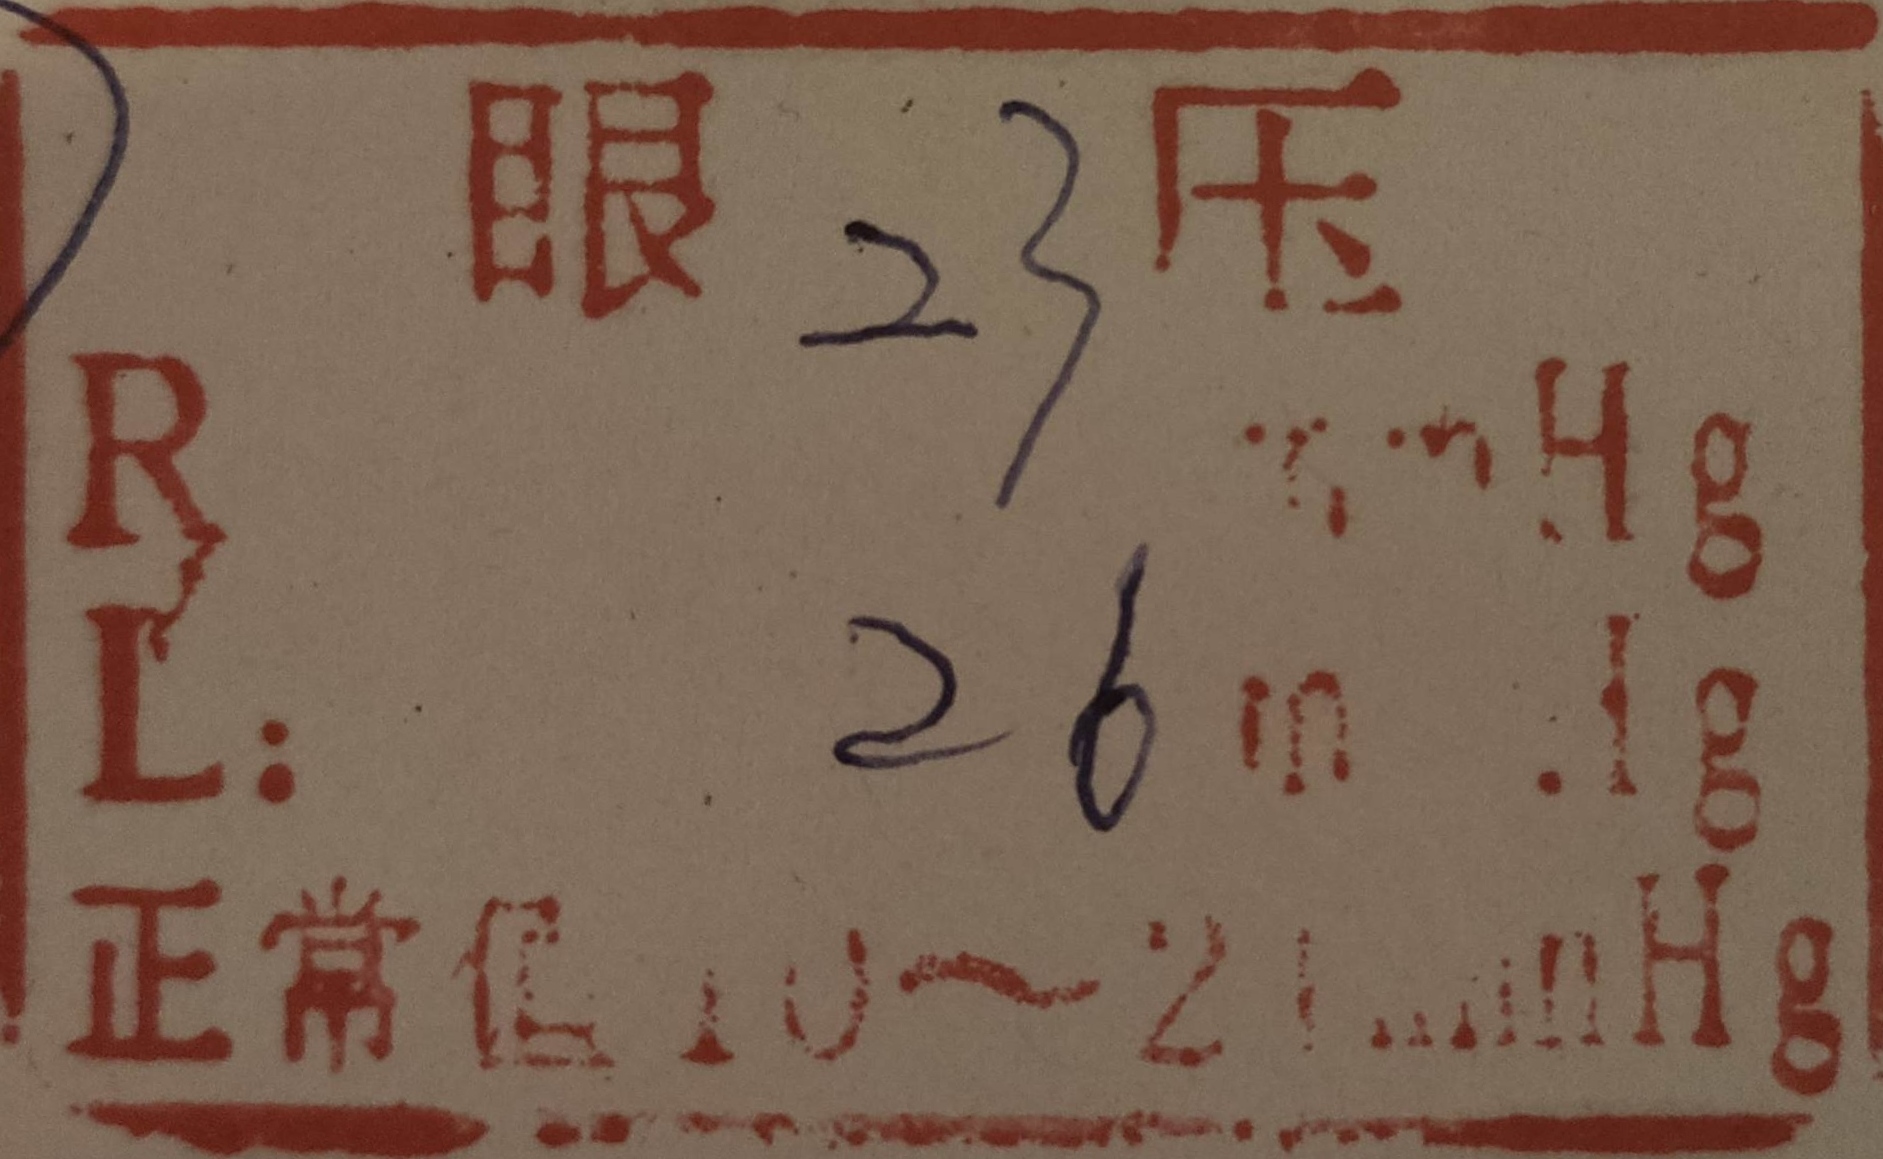 眼压
R 23 mmHg
L: 26 mmHg
正常值10~21mmHg